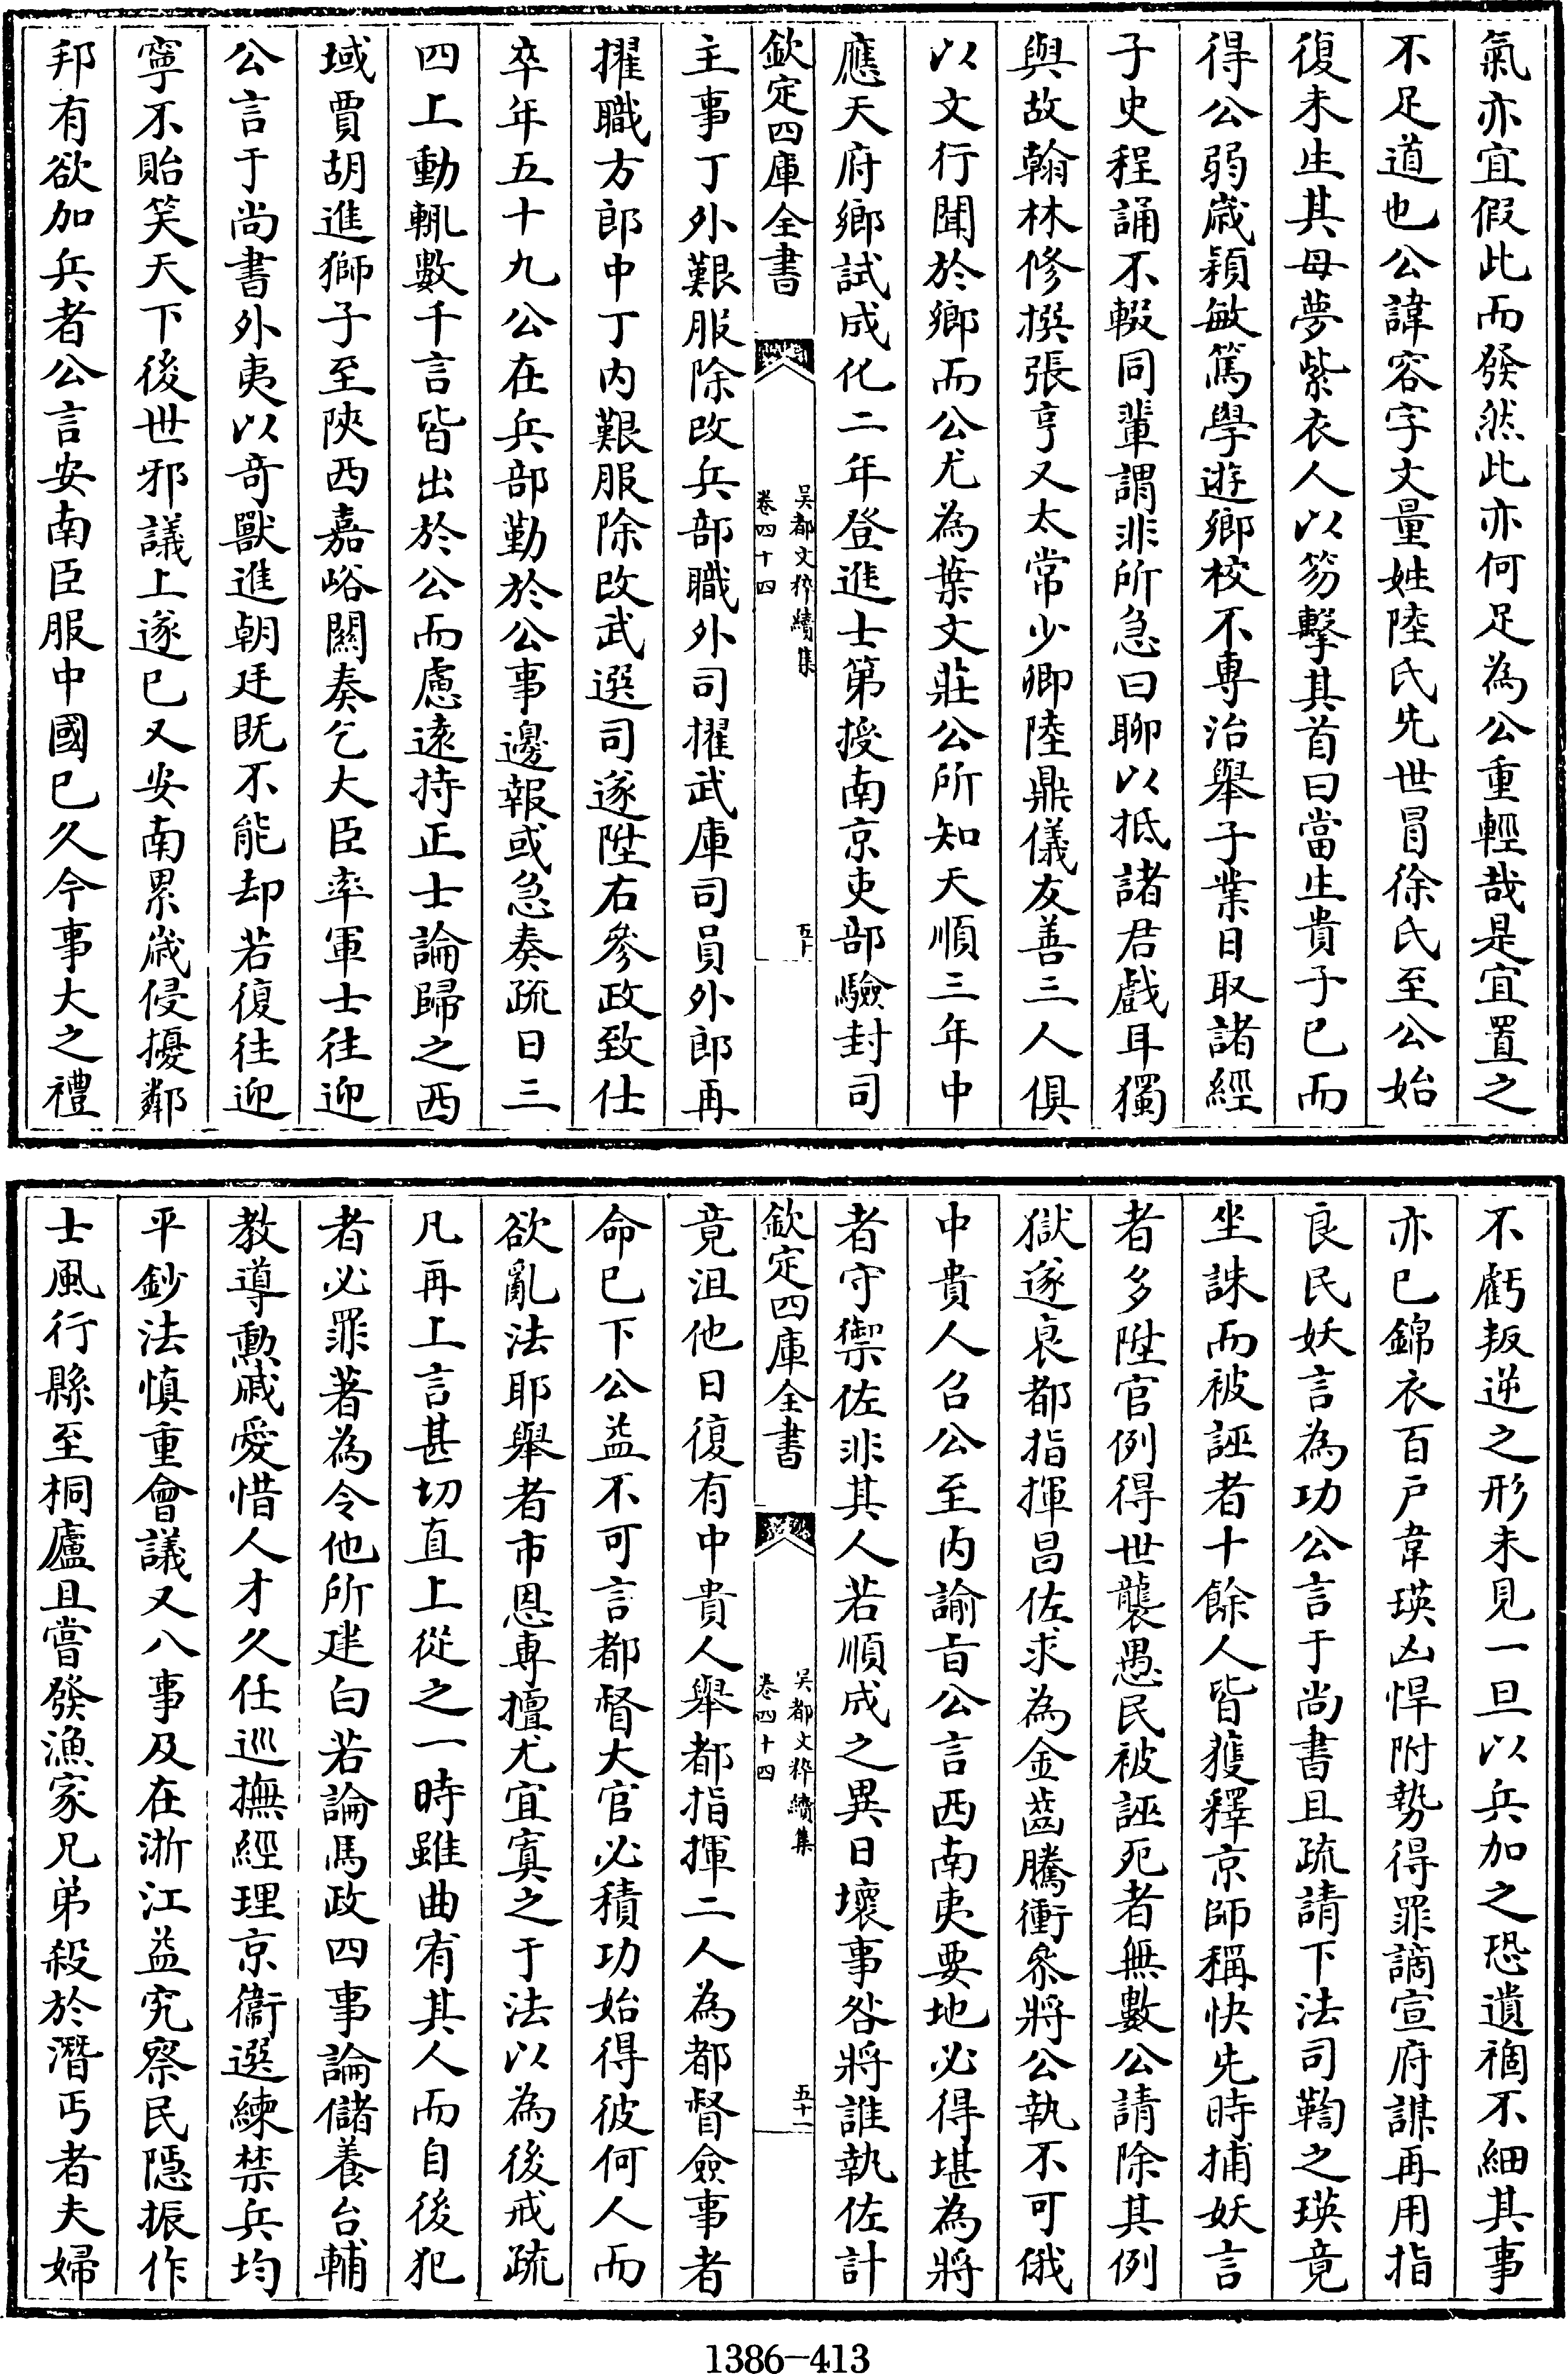 氣亦宜假此而發然此亦何足為公重輕哉是宜置之
不足道也公諱容字文量姓陸氏先世冒徐氏至公始
復未生其母夢紫衣人以笏擊其首曰當生貴子已而
得公弱歲穎敏篤學遊鄉校不專治舉子業日取諸經
子史程誦不輟同輩謂非所急曰聊以抵諸君戲耳獨
與故翰林修撰張亨父太常少卿陸鼎儀友善三人俱
以文行聞於鄉而公尤為葉文莊公所知天順三年中
應天府鄉試成化二年登進士第授南京吏部驗封司
欽定四庫全書
吳都文粹續集
卷四十四
五十
主事丁外艱服除改兵部職外司擢武庫司員外郎再
擢職方郎中丁内艱服除改武選司遂陞右參政致仕
卒年五十九公在兵部勤於公事邊報或急奏疏日三
四上動輒數千言皆出於公而慮遠持正士論歸之西
域賈胡進獅子至陜西嘉峪關奏乞大臣率軍士往迎
公言于尚書外夷以奇獸進朝廷既不能却若復往迎
寧不貽笑天下後世邪議上遂已又安南累歲侵擾鄰
邦有欲加兵者公言安南臣服中國已久今事大之禮
不虧叛逆之形未見一旦以兵加之恐遺禍不細其事
亦已錦衣百戶韋瑛凶悍附勢得罪謫宣府謀再用指
良民妖言為功公言于尚書且疏請下法司鞫之瑛竟
坐誅而被誣者十餘人皆獲釋京師稱快先時捕妖言
者多陞官例得世襲愚民被誣死者無數公請除其例
獄遂衰都指揮昌佐求為金齒騰衝叅將公執不可俄
中貴人召公至内諭旨公言西南夷要地必得堪為將
者守禦佐非其人若順成之異日壞事咎將誰執佐計
欽定四庫全書
吳都文粹續集
卷四十四
五十一
竟沮他日復有中貴人舉都指揮二人為都督僉事者
命已下公益不可言都督大官必積功始得彼何人而
欲亂法耶舉者市恩專擅尤宜寘之于法以為後戒疏
凡再上言甚切直上從之一時雖曲宥其人而自後犯
者必罪著為令他所建白若論馬政四事論儲養台輔
教導勲戚愛惜人才久任巡撫經理京衞選練禁兵均
平鈔法慎重會議又八事及在浙江益究察民隱振作
士風行縣至桐廬且嘗發漁家兄弟殺於潛丐者夫婦
1386-413